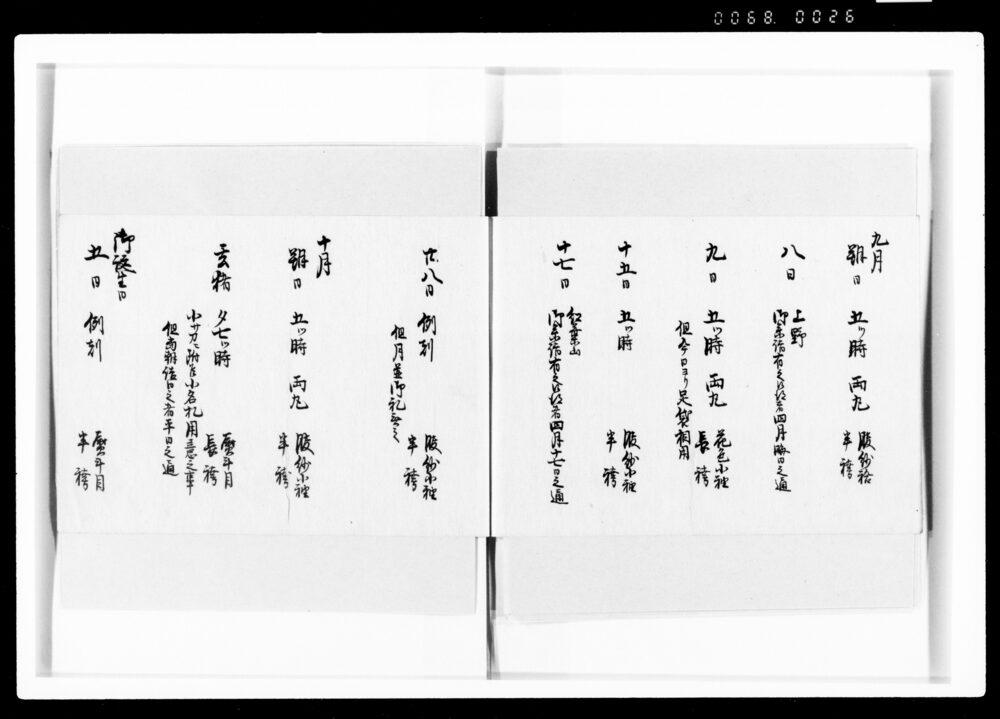 0068.0026
九月
朔日 五ツ時 両丸 服紗袷
半袴
八日 上野
御参詣有之節者四月晦日之通
九日 五ツ時 両丸 花色小袖
長袴
但今日ヨリ足袋相用
十五日 五ツ時 服紗小袖
半袴
十七日 紅葉山
御参詣有之節者四月十七日之通
廿八日 例刻 服紗小袖
半袴
但月並御礼無之
十月
朔日 五ツ時 両丸 服紗小袖
半袴
玄猪 夕七ツ時 熨斗目
長袴
小サ刀 小名札用意之事
但当朝 之者平日之通
御誕生日
五日 例刻 熨斗目
半袴